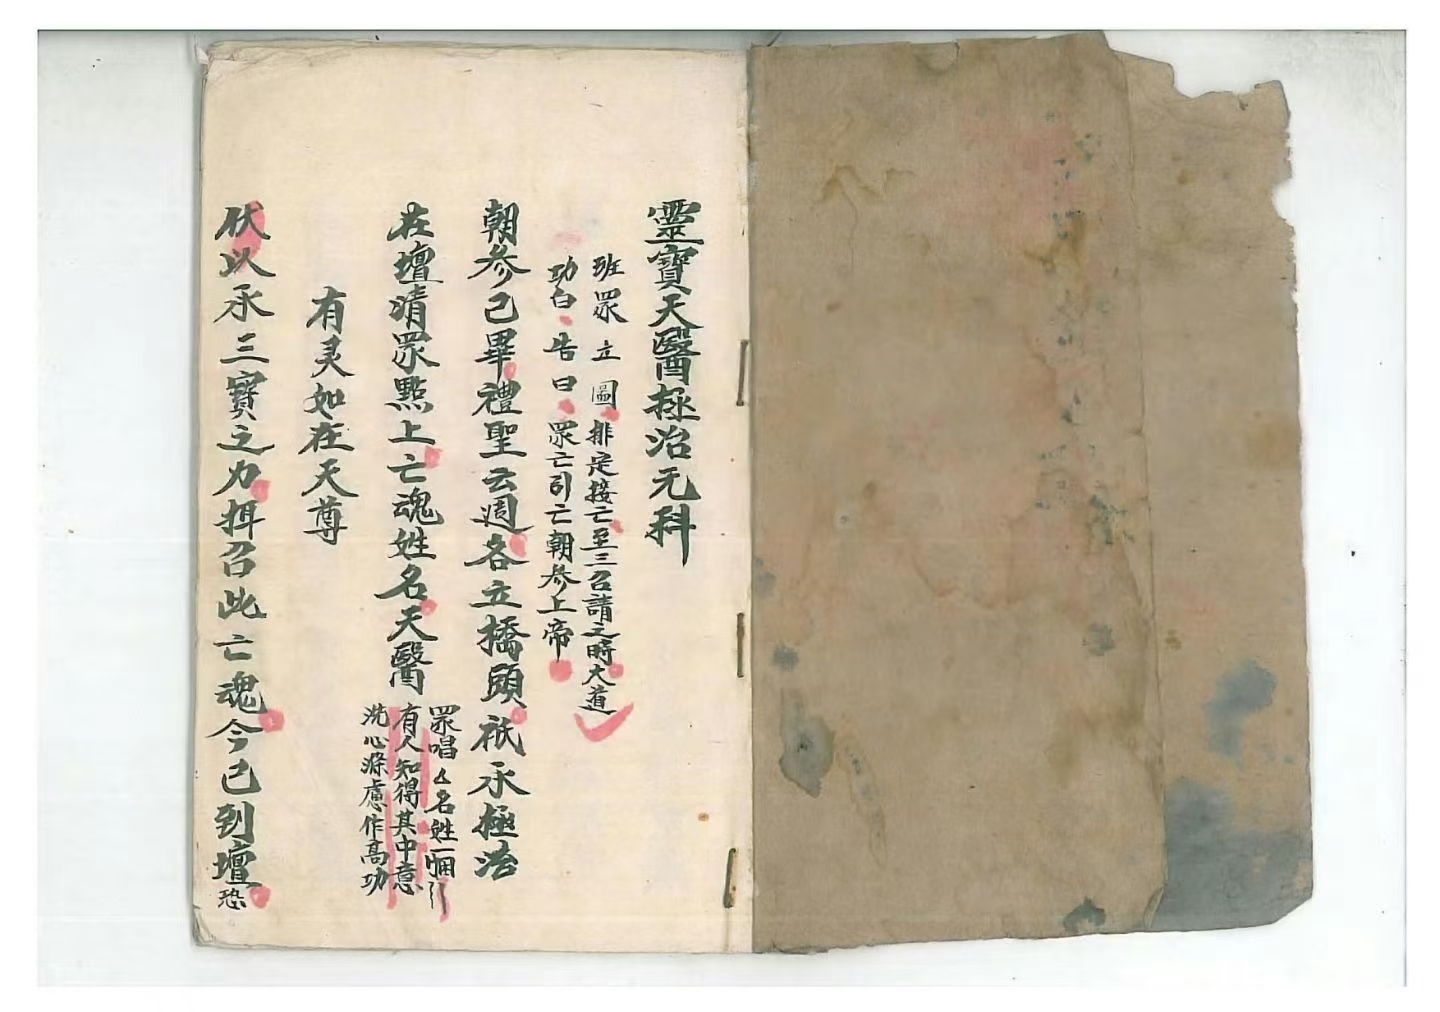 靈寶天醫拯治元科
班眾立圖排定接亡至三召請之時大道
功白告曰眾亡引亡朝參上帝
朝參已畢禮聖云週各立橋頭祇承極法
在壇清眾點上亡魂姓名天醫
眾唱厶名姓一個引
有人知得其中意
洗心滌慮作高功
有灵如在天尊
伏以承三寶之力拜召此亡魂今已到壇恐